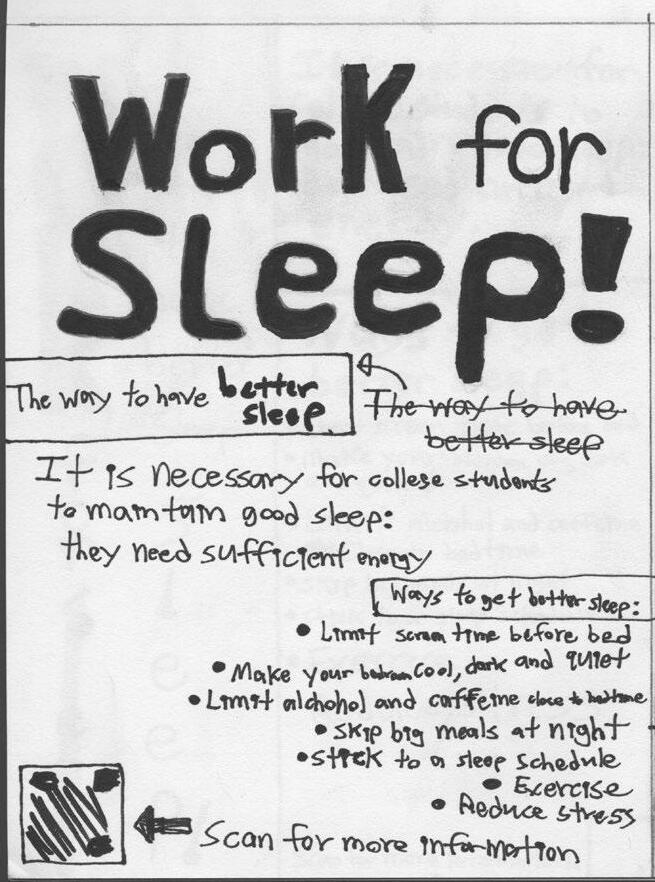 Work for
Sleep!
The way to have better
sleep
The way to have
better sleep
It is necessary for college students
to maintain good sleep:
they need sufficient energy
Ways to get better sleep:
• Limit screen time before bed
• Make your bedroom cool, dark and quiet
• Limit alchohol and caffeine close to bedtime
• Skip big meals at night
• Stick to a sleep schedule
• Exercise
• Reduce stress
Scan for more information